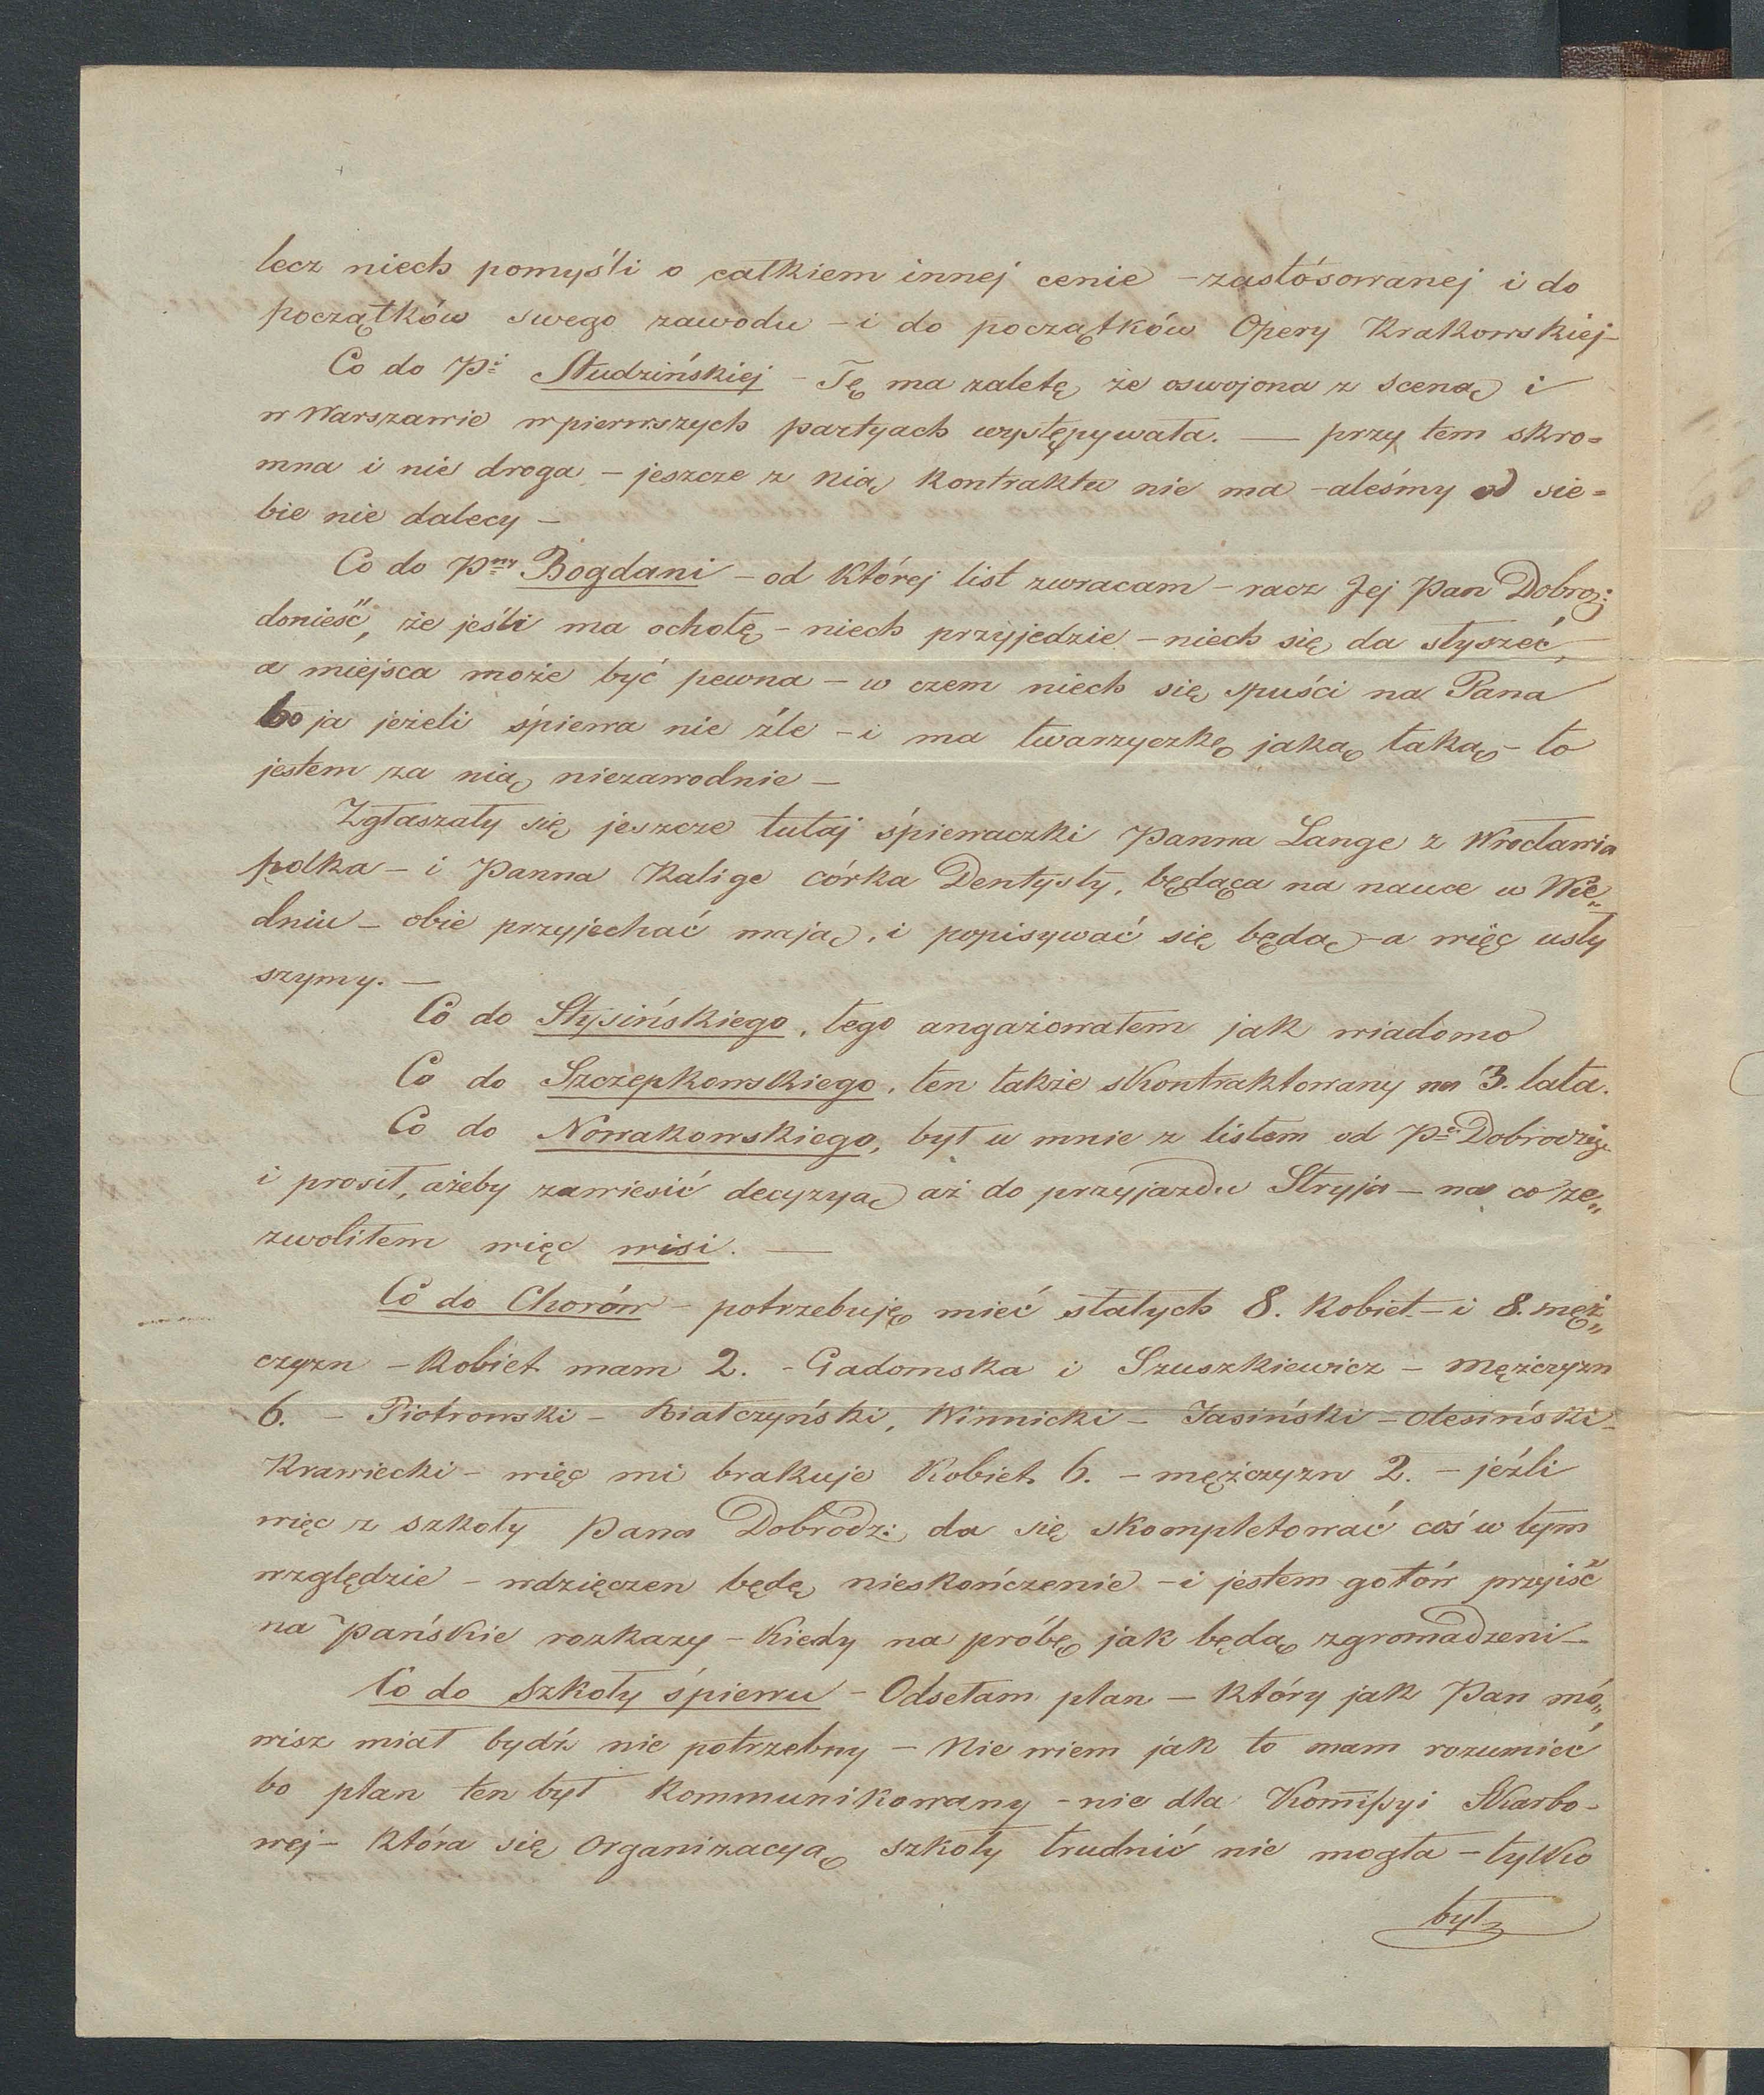 lecz niech pomyśli o całkiem innej cenie – zastósowanej i do
początków swego zawodu – i do początków Opery Krakowskiej –
Co do Pi Studzińskiej – Tę ma zaletę że oswojona z sceną i
w Warszawie w pierwszych partyach występywała. — przy tem skro=
mna i nie droga, – jeszcze z nią kontraktu nie ma – aleśmy od sie=
bie nie dalecy –
Co do Pny Bogdani – od której list zwracam – racz Jej Pan Dobrodz:
donieść, że jeśli ma ochotę – niech przyjedzie – niech się da słyszeć,
a miejsca może być pewna – w czem niech się spuści na Pana
bo ja jeżeli śpiewa nie źle – i ma twarzyczkę jaką taką – to
jestem za nią niezawodnie –
Zgłaszały się jeszcze tutaj śpiewaczki Panna Lange z Wrocławia
polka – i Panna Kalige córka Dentysty, będąca na nauce w Wie„
dniu – obie przyjechać mają, i popisywać się będą – a więc usły
szymy. —
Co do Stysińskiego, tego angażowałem jak wiadomo
Co do Szczepkowskiego, ten także skontraktowany na 3. lata.
Co do Nowakowskiego, był u mnie z listem od Pa Dobrodzieja
i prosił, ażeby zawiesić decyzyą aż do przyjazdu Stryja – na co ze„
zwoliłem więc wisi. —
Co do Chorów – potrzebuję mieć stałych 8. kobiet – i 8. męż„
czyzn – Kobiet mam 2. – Gadomska i Szuszkiewicz – mężczyzn
6. – Piotrowski – Białczyński, Winnicki – Jasiński – Olesiński –
Krawiecki – więc mi brakuje Kobiet 6. – mężczyzn 2. – jeźli
więc z szkoły Pana Dobrodz: da się skompletować coś w tym
względzie – wdzięczen będę nieskończenie – i jestem gotów przejść
na Pańskie rozkazy – kiedy na próbę jak będą zgromadzeni –
Co do Szkoły śpiewu – Odsełam plan – który jak Pan mó„
wisz miał bydź nie potrzebny – Nie wiem jak to mam rozumieć
bo plan ten był kommunikowany – nie dla Kommissyi Skarbo–
wej – która się Organizacyą szkoły trudnić nie mogła – tylko
był